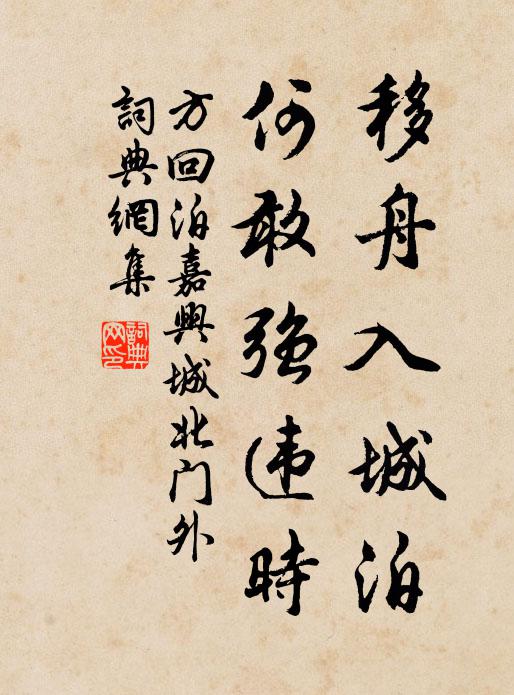 移舟入城泊
何敢強违時
方回泊嘉興城北门外
詞典網集
詞典网印